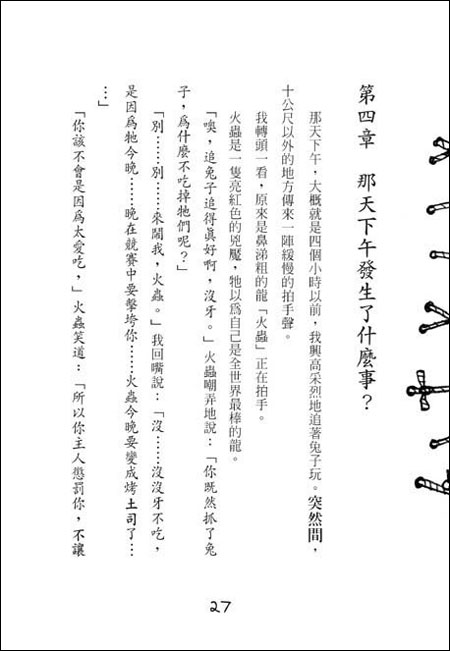 第四章　那天下午發生了什麼事？
那天下午，大概就是四個小時以前，我興高采烈地追著兔子玩。突然間，
十公尺以外的地方傳來一陣緩慢的拍手聲。
我轉頭一看，原來是鼻涕粗的龍「火蟲」正在拍手。
火蟲是一隻亮紅色的兇魘，牠以為自己是全世界最棒的龍。
「噢，追兔子追得真好啊，沒牙。」火蟲嘲弄地說：「你既然抓了兔
子，為什麼不吃掉牠們呢？」
「別……別……來鬧我，火蟲。」我回嘴說：「沒……沒沒牙不吃，
是因為牠今晚……晚在競賽中要擊垮你……火蟲今晚要變成烤土司了…
…」
「你該不會是因為太愛吃，」火蟲笑道：「所以你主人懲罰你，不讓
27